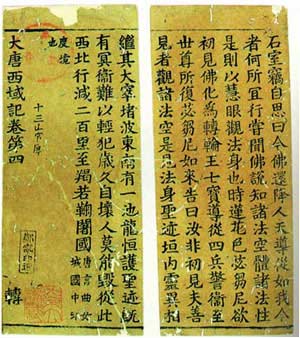 石室竊自思曰今佛還降人天導從如我今
者何所宜行嘗聞佛說知諸法空體諸法性
是則以慧眼觀法身也時蓮花色苾芻尼欲
初見佛化為轉輪王七寶導從四兵警衛至
世尊所復苾芻尼如來告曰汝非初見夫善
見者觀諸法空是見法身聖迹垣內靈異相
繼其大窣堵波東南有一池龍恒護聖迹既
有冥衛難以輕犯歲久自壞人莫能毀從此
西北行減二百里至羯若鞠闍國
唐言曲女
城國中印
度境
也
大唐西域記卷第四
轉